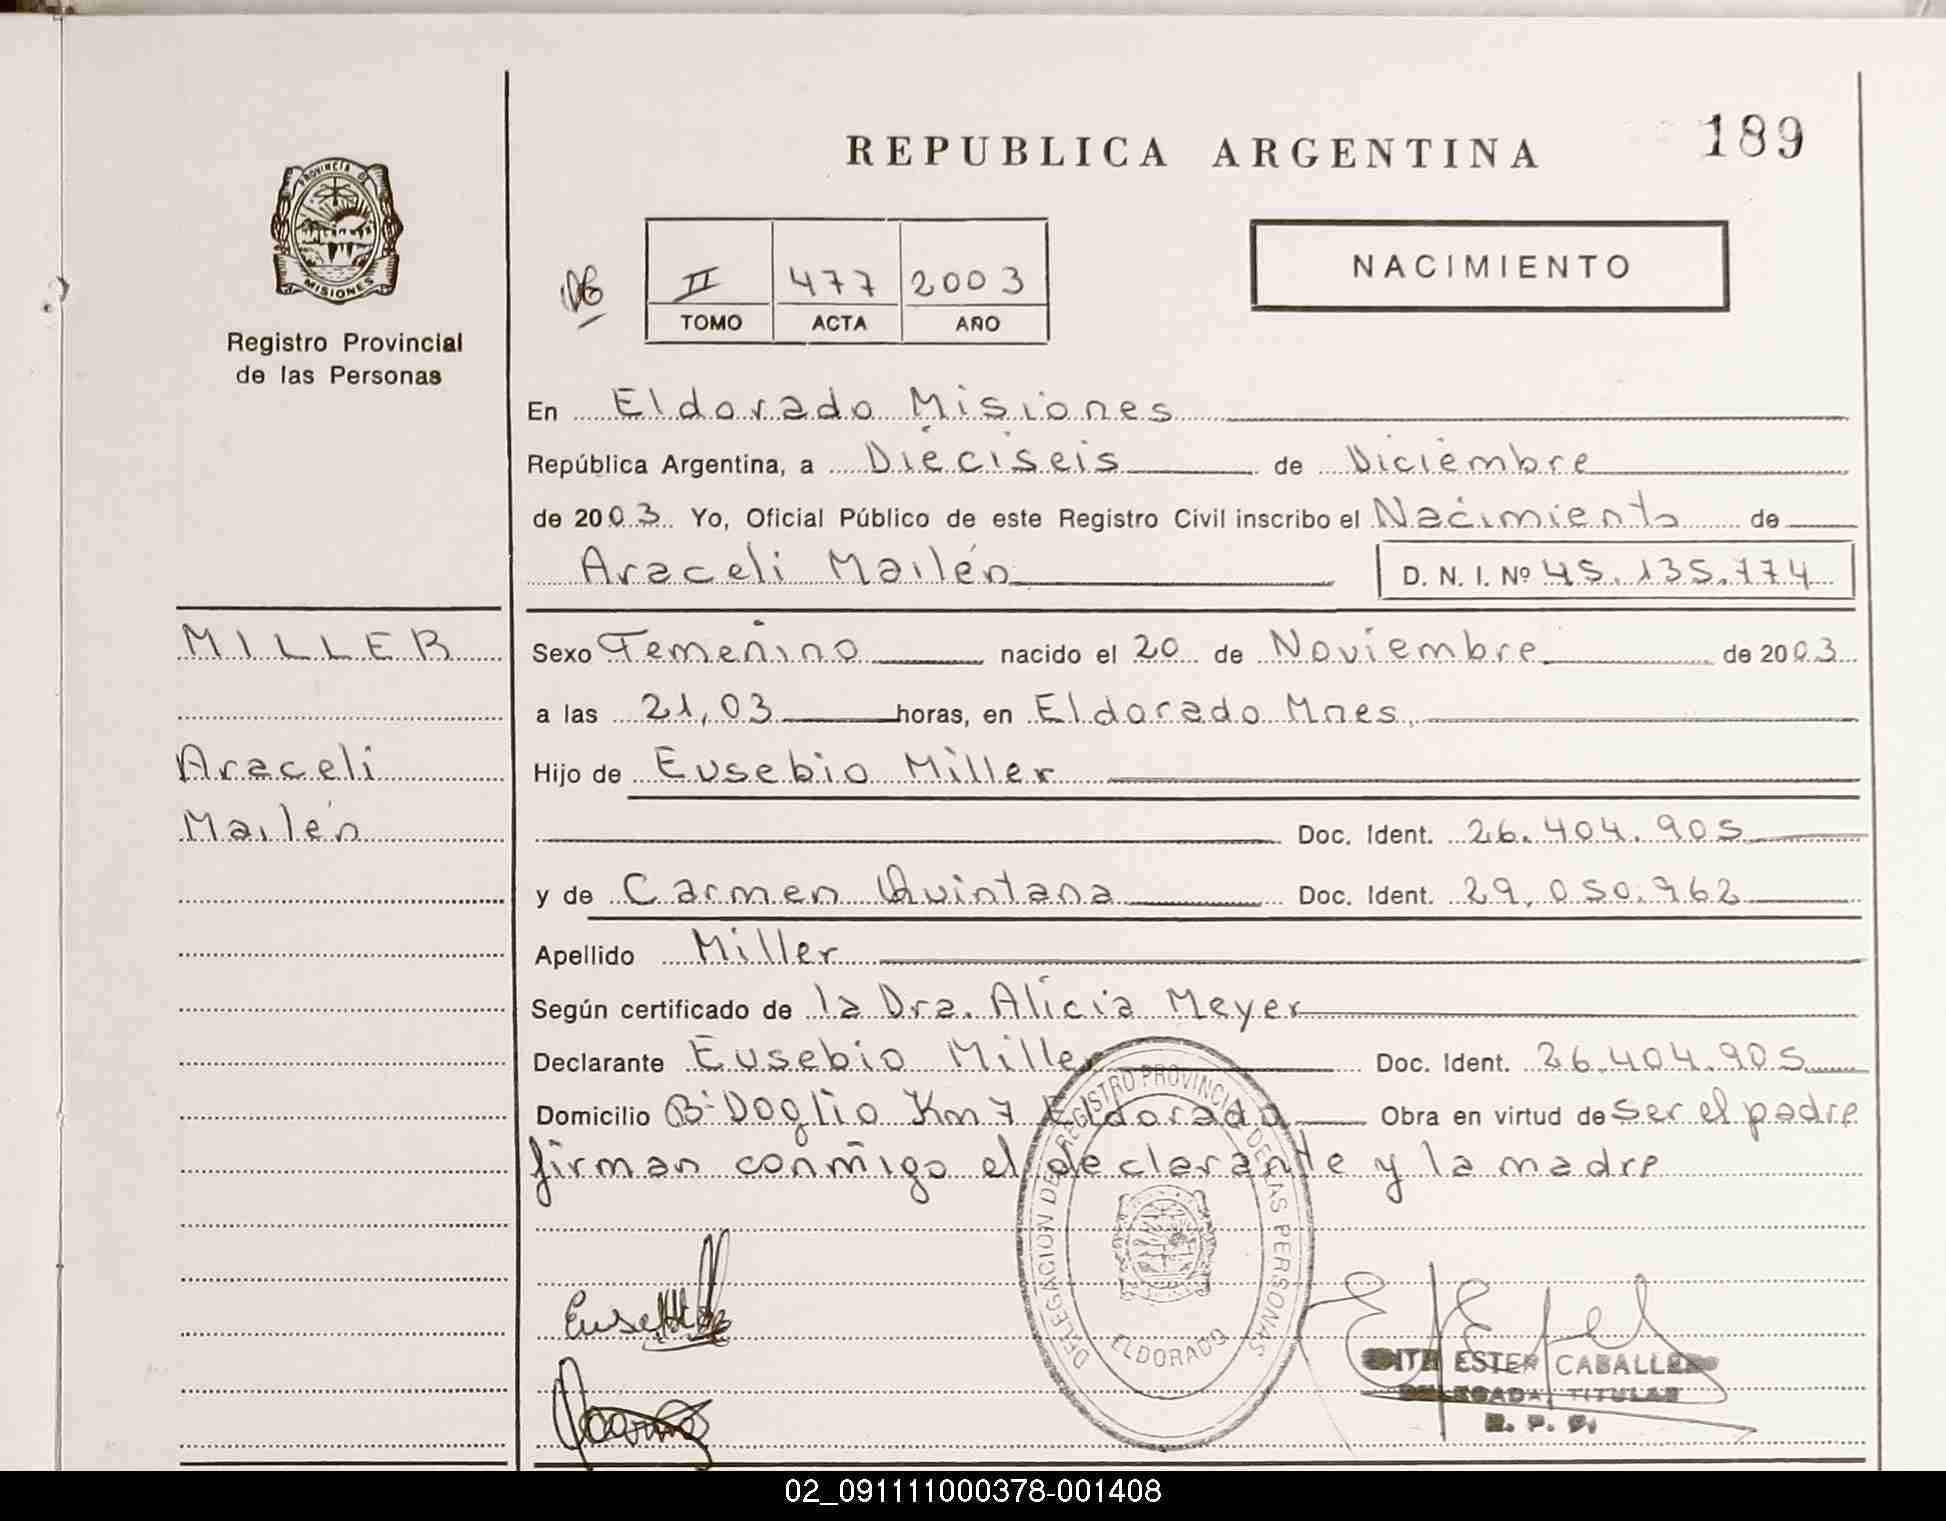 REPUBLICA ARGENTINA
189
PROVINCIA DE
MISIONES
Registro Provincial
de las Personas
II 477 2003
TOMO ACTA AÑO
NACIMIENTO
En Eldorado Misiones
República Argentina, a Dieciseis de Diciembre
de 2003 Yo, Oficial Público de este Registro Civil inscribo el Nacimiento de
Araceli Mailén D. N. I. Nº 45.135.774
MILLER
Araceli
Mailén
Sexo Femenino nacido el 20 de Noviembre de 2003
a las 21,03 horas, en Eldorado Mnes.
Hijo de Eusebio Miller
Doc. Ident. 26.404.905
y de Carmen Quintana Doc. Ident. 29.050.962
Apellido Miller
Según certificado de la Dra. Alicia Meyer
Declarante Eusebio Miller Doc. Ident. 26.404.905
Domicilio Bº Doglio Km 7 Eldorado Obra en virtud de ser el padre
firman conmigo el declarante y la madre
DELEGACION DEL REGISTRO PROVINCIAL DE LAS PERSONAS
ELDORADO
ESTER CABALLERO
DELEGADA TITULAR
R. P. P.
02_091111000378-001408